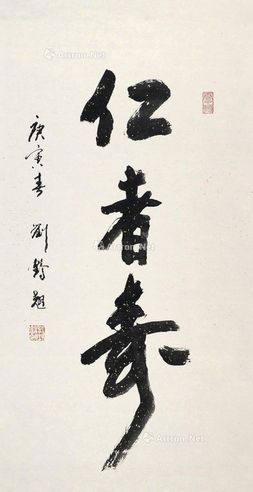 仁者寿
庚寅春 刘鹤翘
Artron.Net
Artron.Net